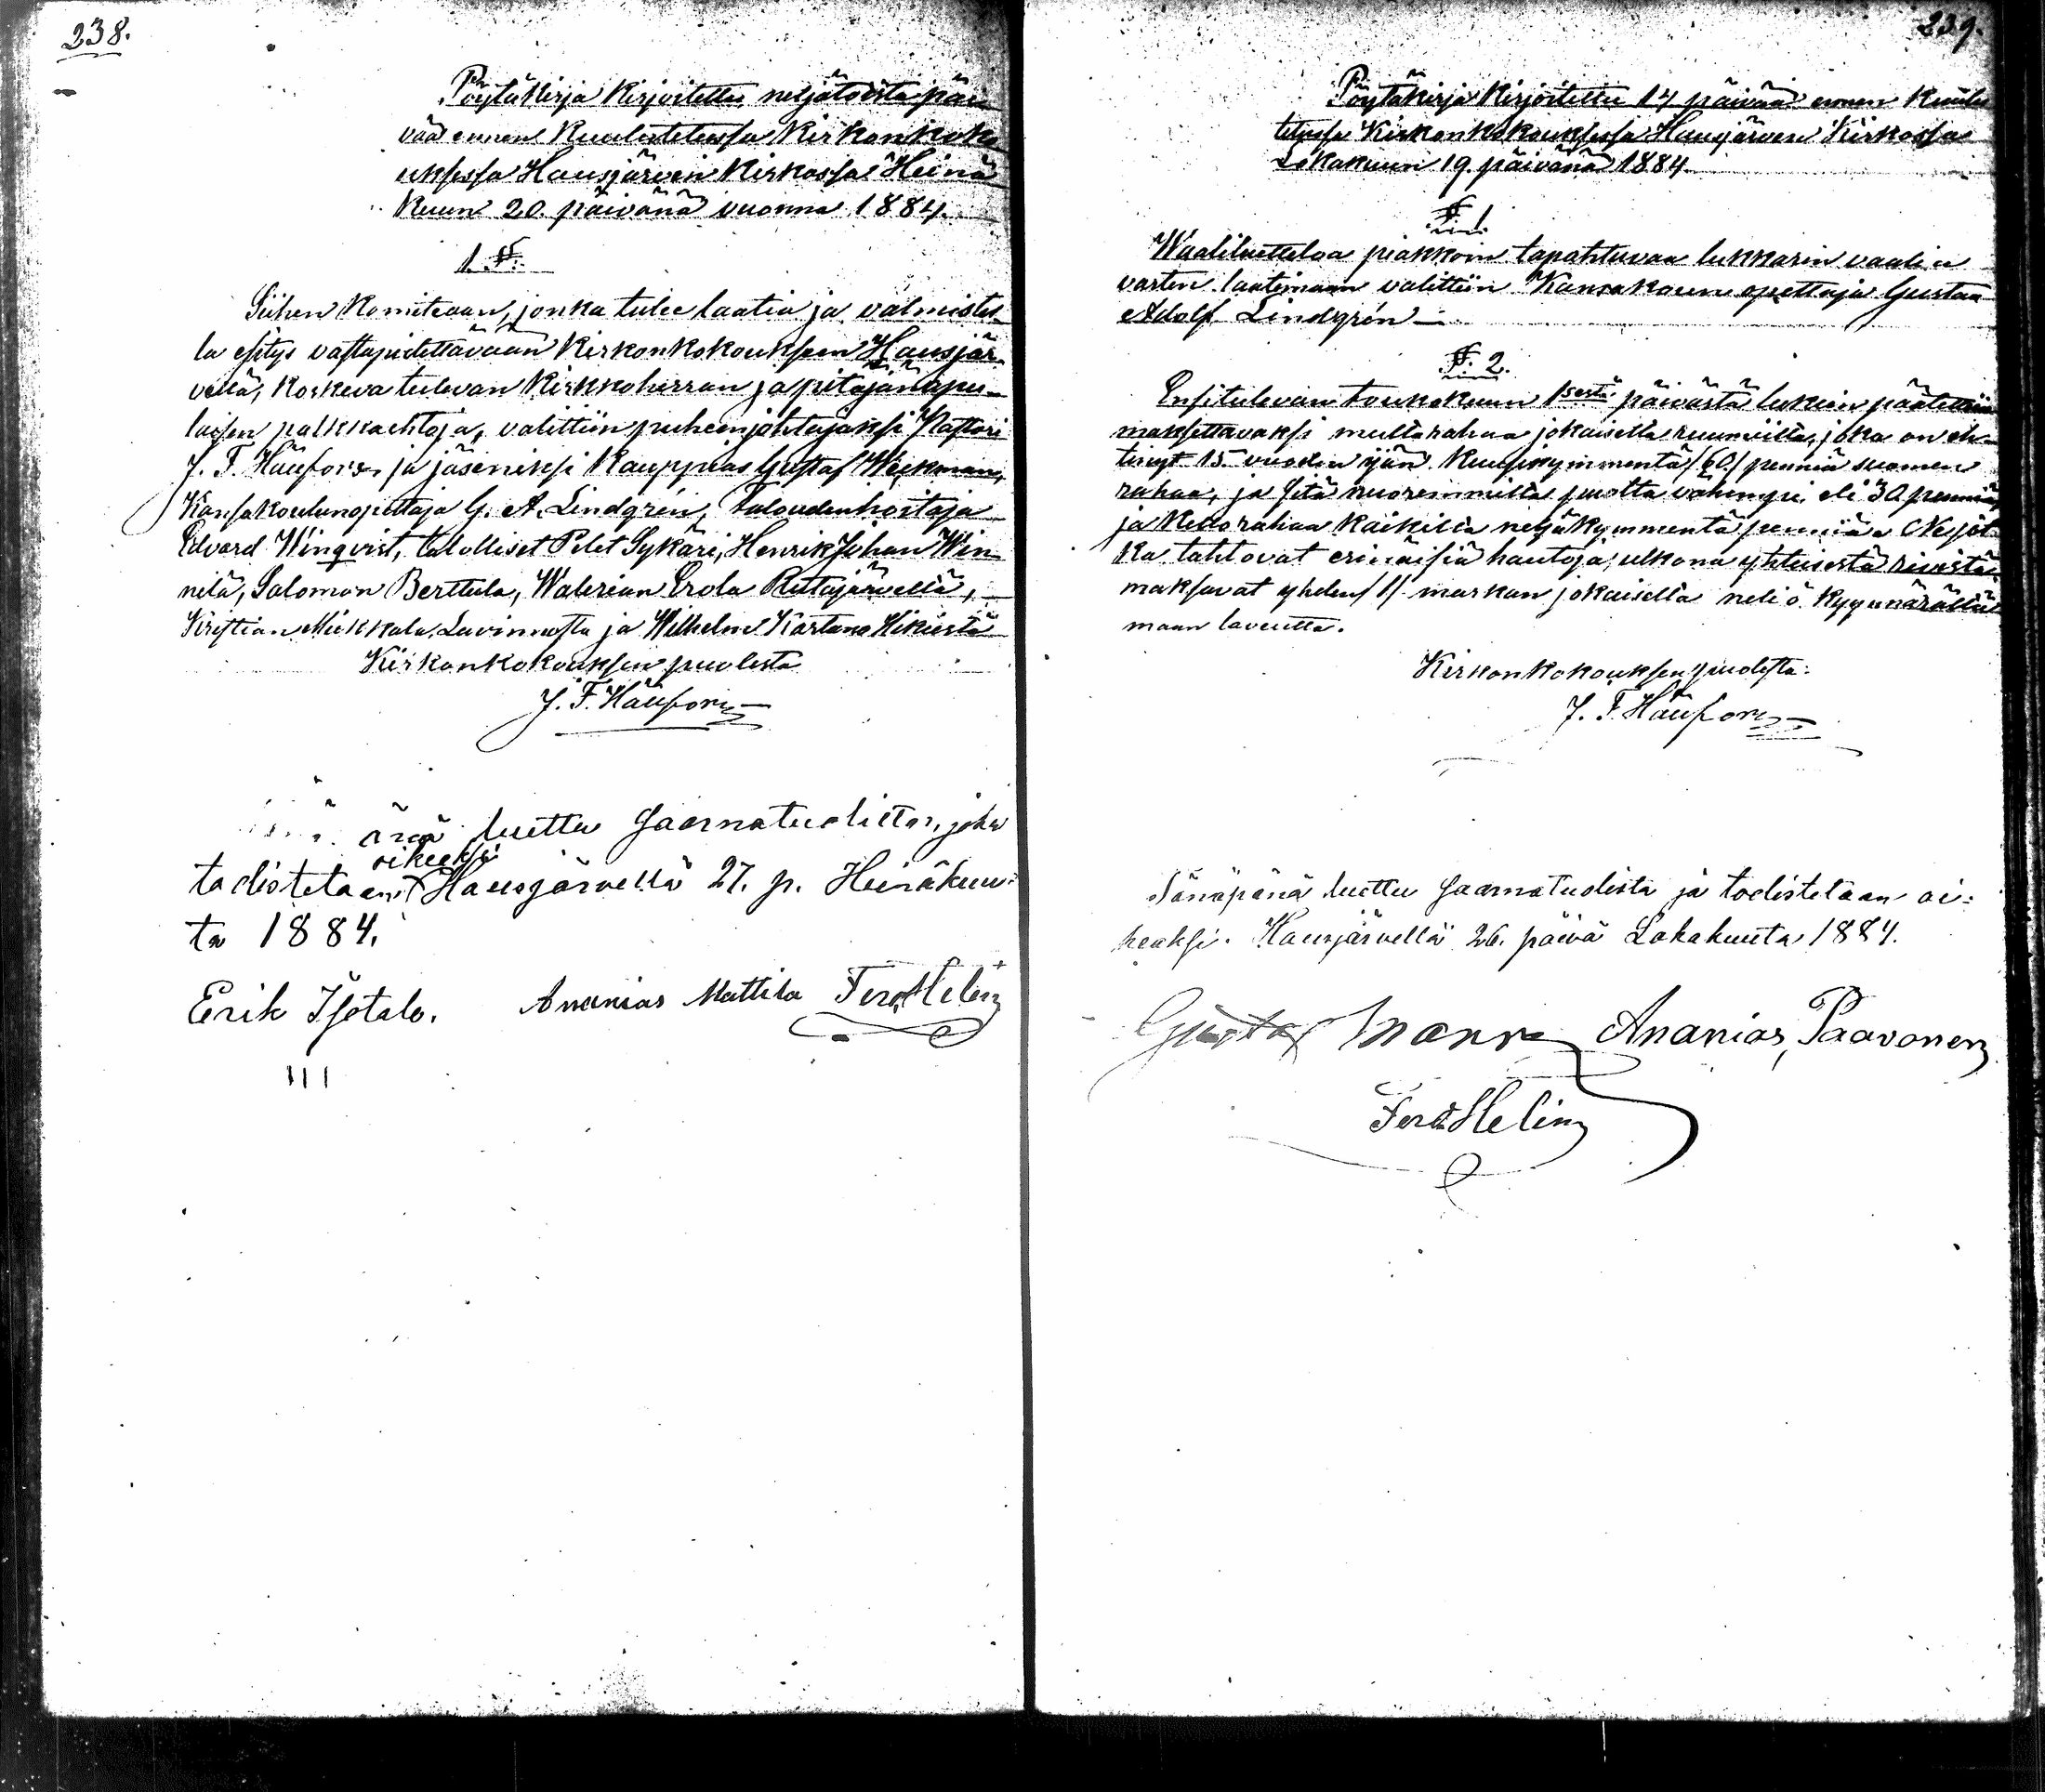 238.
Pöytäkirja kirjoitettu neljätoista päi
vää ennen kuulutetussa kirkonkoko
uksessa Hausjärven kirkossa Heinä
kuun 20. päivänä vuonna 1884.
1 §.
Siihen komiteaan, jonka tulee laatia ja valmistel
la esitys vastapidettävään kirkonkokoukseen Hausjär
vellä, koskeva tulevan kirkkoherran ja pitäjänapu
laisen palkkaehtoja, valittiin puheenjohtajaksi Pastori
J. F. Häufors, ja jäseniksi kauppias Gustaf Weckman,
Kansakoulunopettaja G. A. Lindgrén, Taloudenhoitaja
Edvard Winqvist, talolliset Pelet Sykäri, Henrik Juhan Win
nilä, Salomon Berttula, Walerian Erola Ruttajärvellä,
Kristian Mikkola Lavinnosta ja Wilhelm Kartano Hikiestä
Kirkonkokouksen puolesta
J. F. Häufors
änä luettu saarnatuolista, joka
oikeaksi
todistetaan Hausjärvellä 27. p. Heinäkuu:
ta 1884.
Erik Isotalo. Ananias Mattila Ferd Helin
239.
Pöytäkirja kirjoitettu 14 päivää ennen kuulu
tetussa kirkonkokouksessa Hausjärven Kirkossa
Lokakuun 19. päivänä 1884.
§ 1.
Waaliluetteloa piakkoin tapahtuvaa lukkarin vaalia
varten laatimaan valittiin Kansakoun opettaja Gustaa
Adolf Lindgrén
§. 2.
Ensitulevan toukokuun 1sestä päivästä lukein päätettiin
maksettavaksi multarahaa jokaiselta ruumiilta, joka on eh
tinyt 15 vuoden ijän kuusikymmentä /60/ penniä suomen
rahaa, ja sitä nuoremmilta puolta vähempi eli 30 penniä,
ja kellorahaa kaikilta neljäkymmentä penniä. Ne jot
ka tahtovat erinäisiä hautoja ulkona yhteisestä rivistä
maksavat yhden /1/ markan jokaisella neliö kyynärällä
maan laveutta.
Kirkonkokouksen puolesta:
J. F. Häufors
Tänäpänä luettu saarnatuolista ja todistetaan oi:
keaksi. Hausjärvellä 26. päivä Lokakuuta 1884.
Gustaf Ananias Paavonen
Ferd Helin